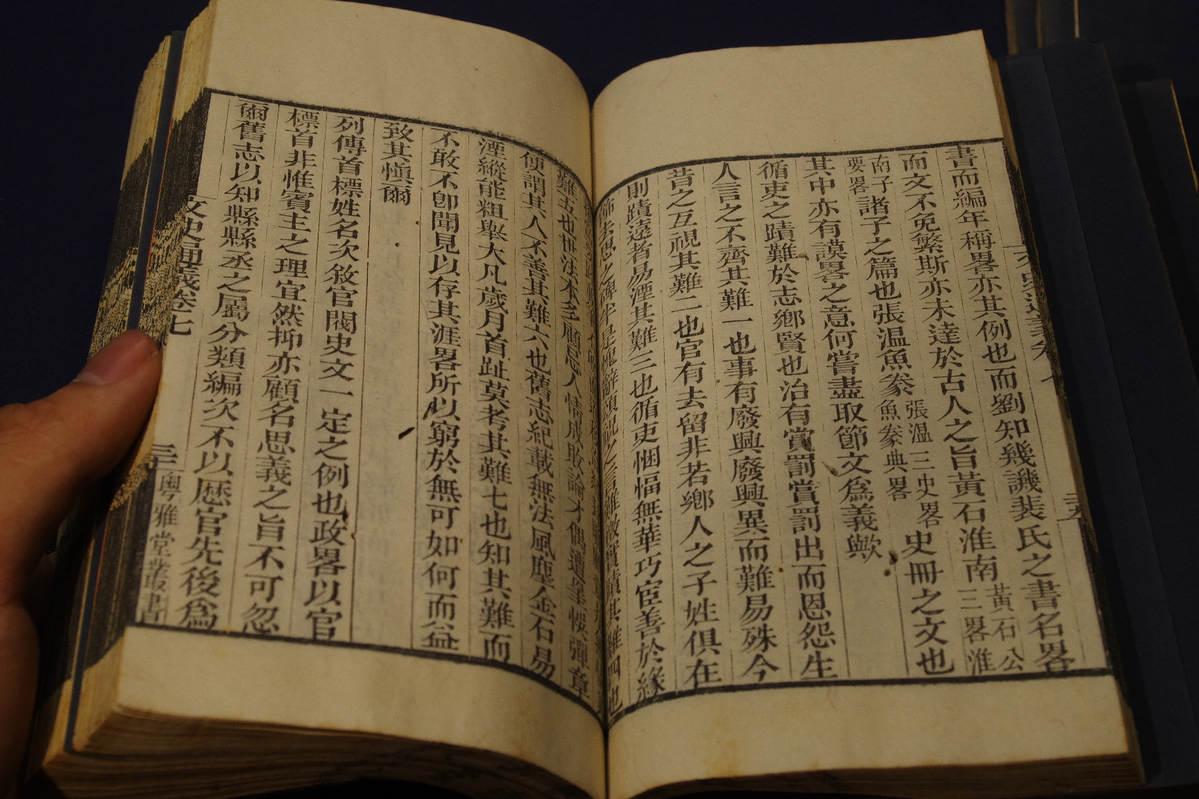 書而編年稱畧亦其例也而劉知幾譏裴氏之書名畧
而文不免繁斯亦未達於古人之旨黃石淮南黃石公三畧淮
南子要畧諸子之篇也張溫魚豢張溫三史畧魚豢典畧史冊之文也
其中亦有謨畧之意何嘗盡取節文爲義歟
循吏之蹟難於志鄉賢也治有賞罰賞罰出而恩怨生
人言之不齊其難一也事有廢興廢興異而難易殊今
昔之互視其難二也官有去留非若鄉人之子姓俱在
則蹟遠者易湮其難三也循吏悃愊無華巧宦善於緣
飾去思之碑半是
難五也
便謂其人不善其難六也舊志紀載無法風塵金石易
湮縱能粗舉大凡歲月首趾莫考其難七也知其難而
不敢不卽聞見以存其涯畧所以窮於無可如何而益
致其愼爾
列傳首標姓名次敘官閥史文一定之例也政畧以官
標首非惟賓主之理宜然抑亦顧名思義之旨不可忽
爾舊志以知縣縣丞之屬分類編次不以歷官先後爲
文史通義卷七
三 粵雅堂叢書